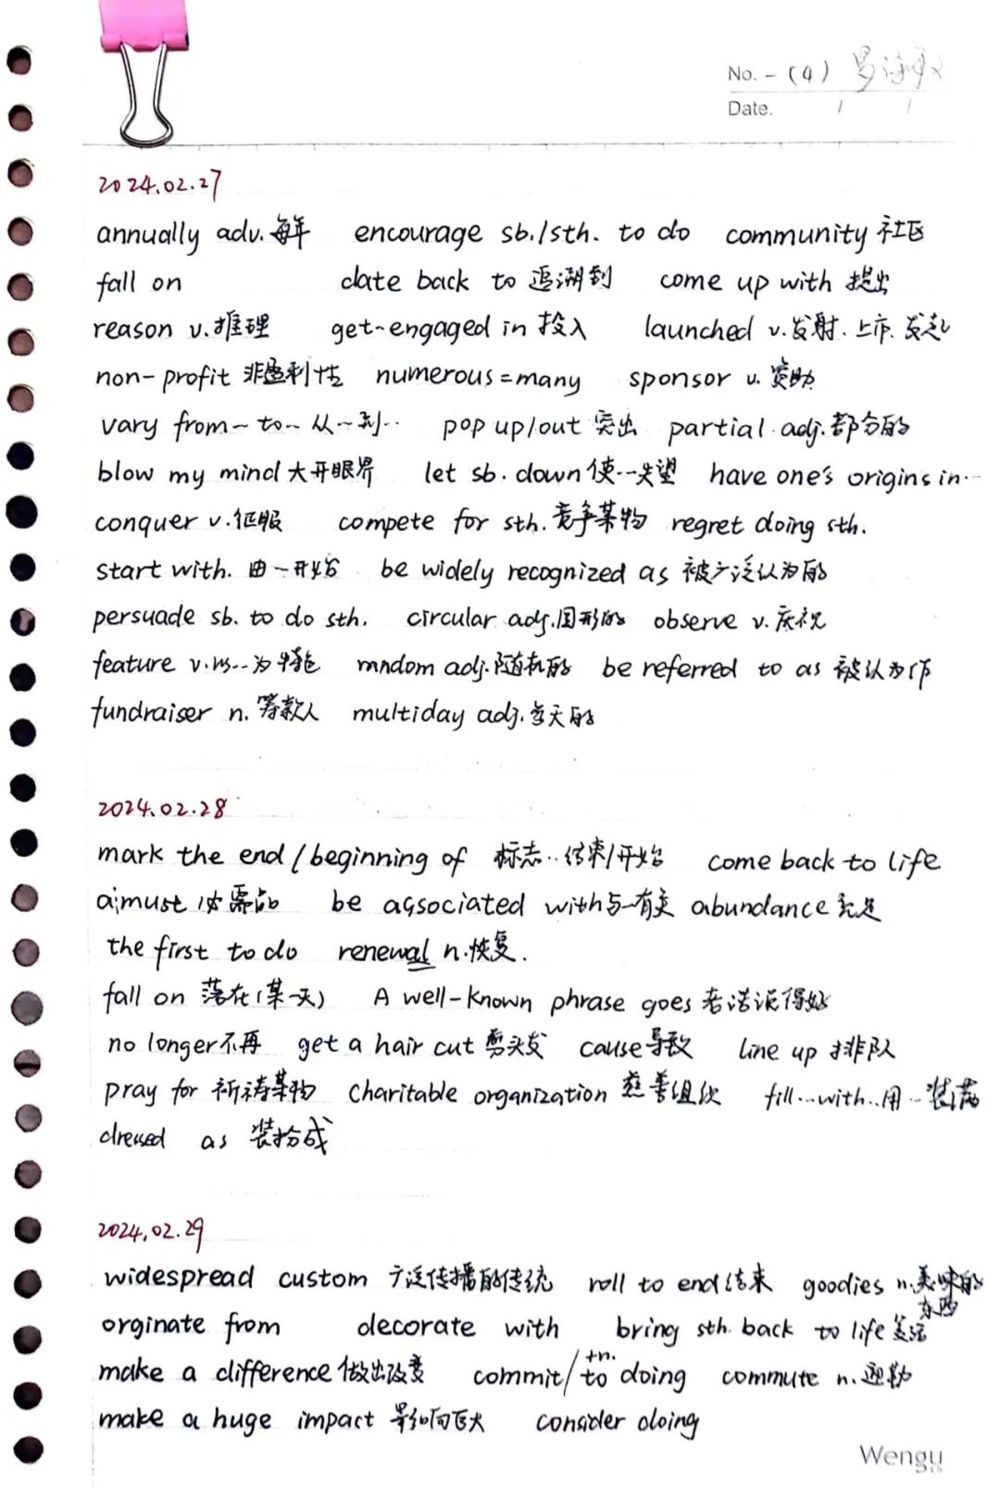 No. -(4)
Date. / /
2024.02.27
annually adv. 每年 encourage sb./sth. to do community 社区
fall on date back to 追溯到 come up with 提出
reason v.推理 get-engaged in 投入 launched v.发射.上市.发起
non-profit 非盈利性 numerous=many sponsor v.资助
vary from~to~ 从~到·· pop up/out 突出 partial.adj.部分的
blow my mind 大开眼界 let sb. down 使··失望 have one's origins in···
conquer v.征服 compete for sth. 竞争某物 regret doing sth.
start with. 由一开始 be widely recognized as 被广泛认为的
persuade sb. to do sth. circular adj.圆形的 observe v.庆祝
feature v.以··为特色 random adj.随机的 be referred to as 被认为作
fundraiser n.筹款人 multiday adj.多天的
2024.02.28
mark the end/beginning of 标志··结束/开始 come back to life
a;must 必需品 be associated with 与一有关 abundance 充足
the first to do renewal n.恢复.
fall on 落在(某一天) A well-known phrase goes 老话说得好
no longer 不再 get a hair cut 剪头发 cause 导致 line up 排队
pray for 祈祷某物 charitable organization 慈善组织 fill···with··用··装满
dressed as 装扮成
2024.02.29
widespread custom 广泛传播的传统 roll to end 结束 goodies n.美味的东西
orginate from decorate with bring sth. back to life 复活
make a difference 做出改变 commit/to doing +n. commute n.通勤
make a huge impact 影响巨大 consider doing
Wengu